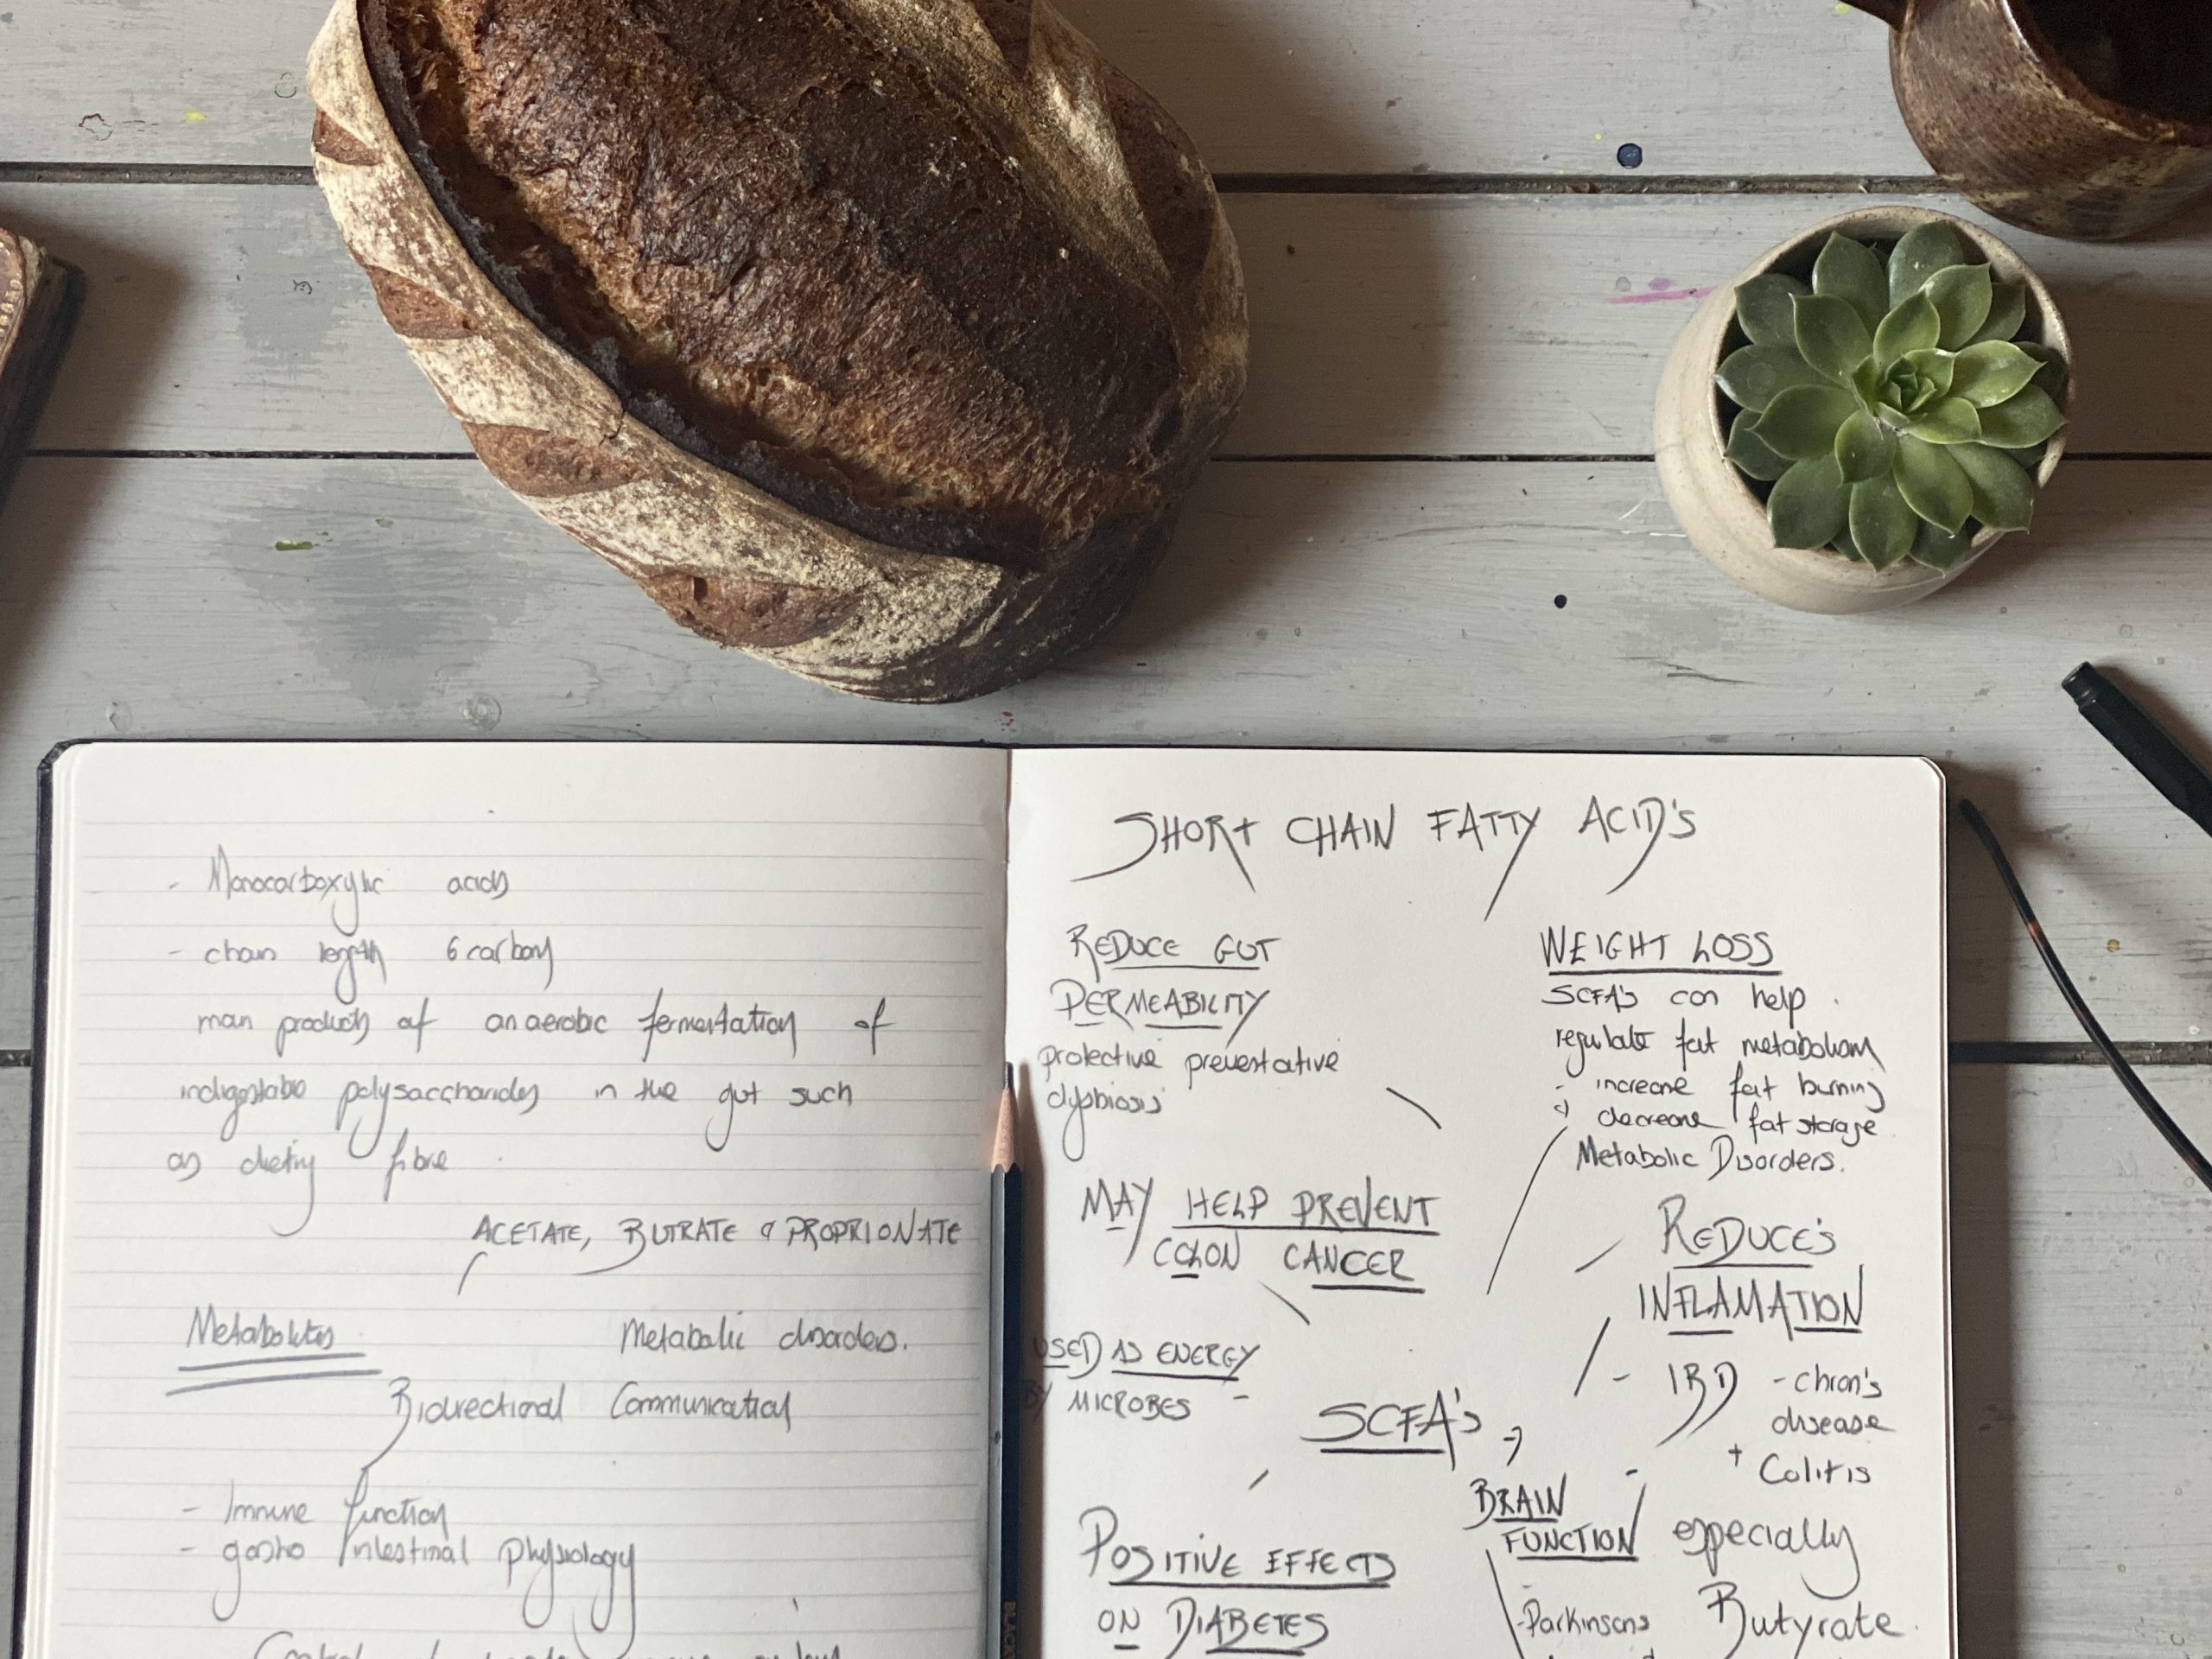 - Monocarboxylic acids
- chain length 6 carbons
main products of anaerobic fermentation of
indigestable polysaccharides in the gut such
as dietry fibre
ACETATE, BUTRATE & PROPRIONATE
Metabolites
Metabolic disorders.
Bidirectional Communication
- Immune function
- gastro intestinal physiology
SHORT CHAIN FATTY ACID'S
REDUCE GUT
PERMEABILITY
protective preventative
dysbiosis
MAY HELP PREVENT
COLON CANCER
USED AS ENERGY
BY MICROBES
SCFA's
POSITIVE EFFECTS
ON DIABETES
WEIGHT LOSS
SCFA's can help
regulate fat metabolism
- increase fat burning
& decrease fat storage
Metabolic Disorders.
REDUCE'S
INFLAMATION
- IBD - chron's
disease
+ Colitis
BRAIN
FUNCTION
- Parkinsons
especially
Butyrate.
BLACK